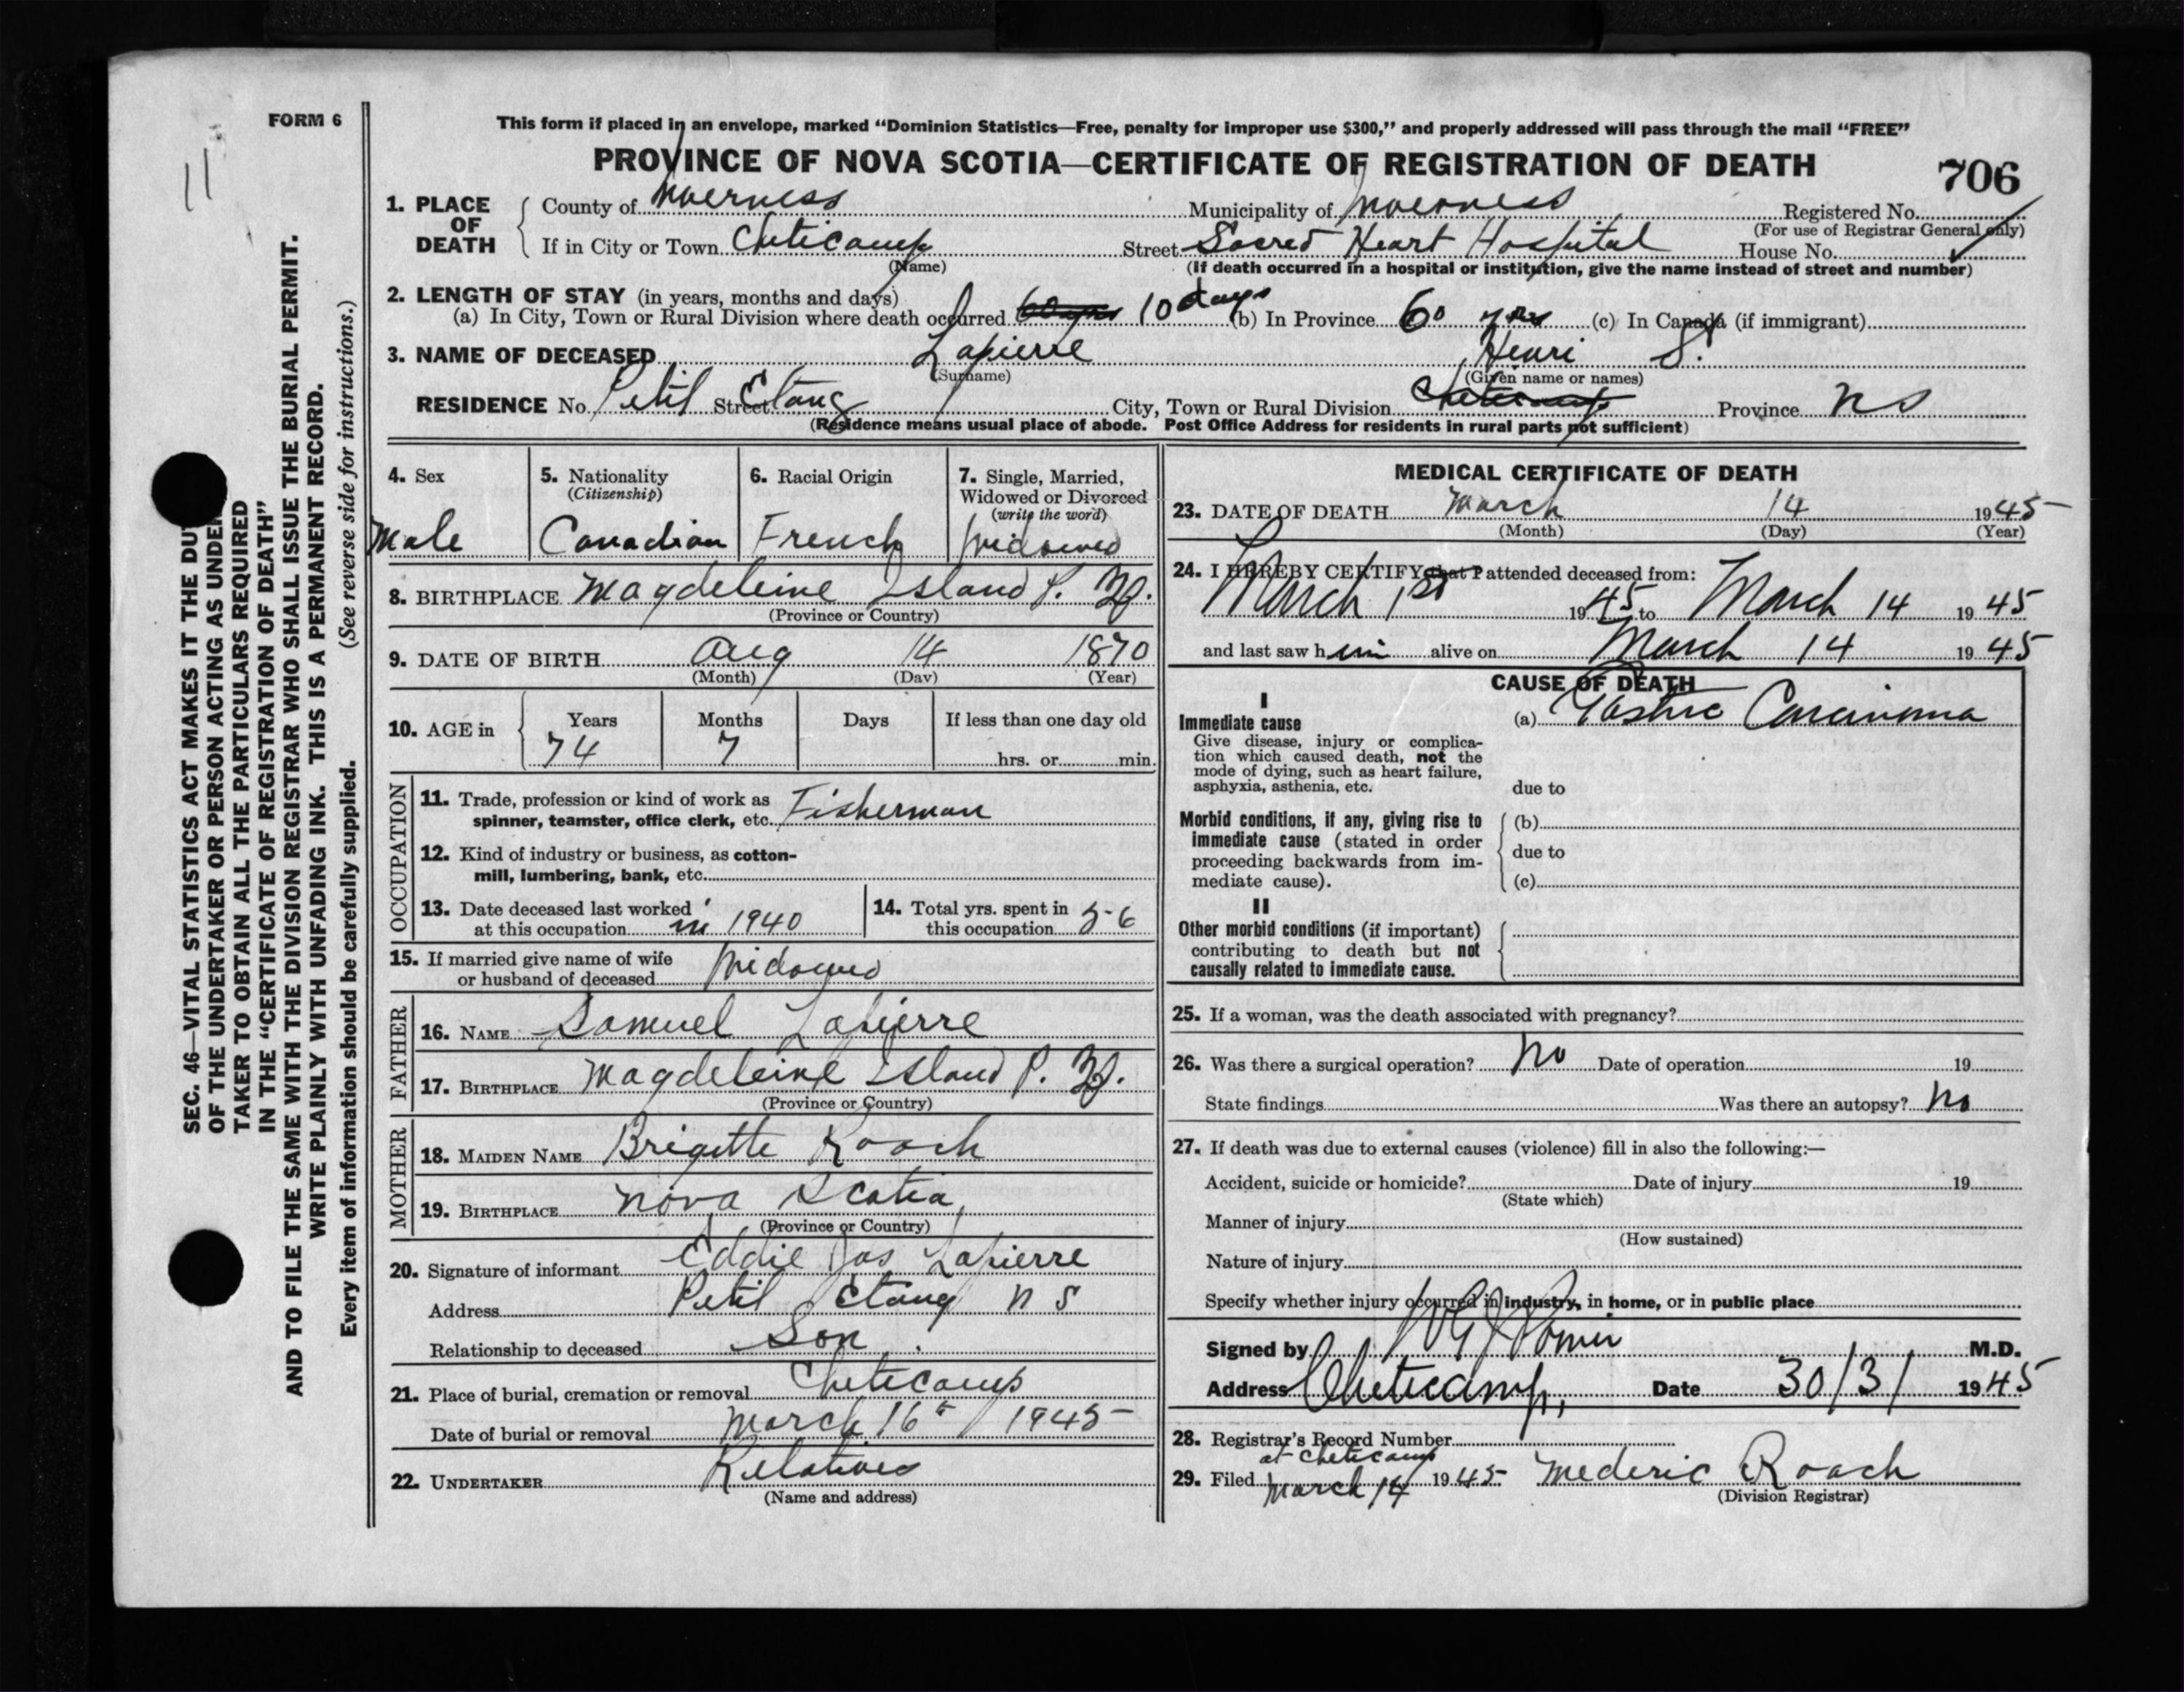 FORM 6
11
This form if placed in an envelope, marked “Dominion Statistics—Free, penalty for improper use $300,” and properly addressed will pass through the mail “FREE”
PROVINCE OF NOVA SCOTIA—CERTIFICATE OF REGISTRATION OF DEATH
706
1. PLACE OF DEATH
County of Inverness Municipality of Inverness Registered No.
(For use of Registrar General only)
If in City or Town Cheticamp Street Sacred Heart Hospital House No.
(Name) (If death occurred in a hospital or institution, give the name instead of street and number)
2. LENGTH OF STAY (in years, months and days)
(a) In City, Town or Rural Division where death occurred 60 yrs 10 days (b) In Province 60 yrs (c) In Canada (if immigrant)
3. NAME OF DECEASED Lapierre Henri S.
(Surname) (Given name or names)
RESIDENCE No. Petit Street Etang City, Town or Rural Division Cheticamp Province NS
(Residence means usual place of abode. Post Office Address for residents in rural parts not sufficient)
4. Sex
Male
5. Nationality
(Citizenship)
Canadian
6. Racial Origin
French
7. Single, Married,
Widowed or Divorced
(write the word)
Widowed
8. BIRTHPLACE Magdeleine Island P. Q.
(Province or Country)
9. DATE OF BIRTH Aug 14 1870
(Month) (Day) (Year)
10. AGE in
Years Months Days If less than one day old
74 7 hrs. or min.
OCCUPATION
11. Trade, profession or kind of work as
spinner, teamster, office clerk, etc. Fisherman
12. Kind of industry or business, as cotton-
mill, lumbering, bank, etc.
13. Date deceased last worked
at this occupation in 1940
14. Total yrs. spent in
this occupation 56
15. If married give name of wife
or husband of deceased Widowed
FATHER
16. NAME Samuel Lapierre
17. BIRTHPLACE Magdeleine Island P. Q.
(Province or Country)
MOTHER
18. MAIDEN NAME Brigette Roach
19. BIRTHPLACE Nova Scotia
(Province or Country)
20. Signature of informant Eddie Jos Lapierre
Address Petit Etang N S
Relationship to deceased Son
21. Place of burial, cremation or removal Cheticamp
Date of burial or removal March 16th 1945
22. UNDERTAKER Relatives
(Name and address)
MEDICAL CERTIFICATE OF DEATH
23. DATE OF DEATH March 14 1945
(Month) (Day) (Year)
24. I HEREBY CERTIFY that I attended deceased from:
March 1st 1945 to March 14 1945
and last saw him alive on March 14 1945
CAUSE OF DEATH
I
Immediate cause
Give disease, injury or complica-
tion which caused death, not the
mode of dying, such as heart failure,
asphyxia, asthenia, etc.
(a) Gastric Carcinoma
due to
Morbid conditions, if any, giving rise to
immediate cause (stated in order
proceeding backwards from im-
mediate cause).
(b)
due to
(c)
II
Other morbid conditions (if important)
contributing to death but not
causally related to immediate cause.
25. If a woman, was the death associated with pregnancy?
26. Was there a surgical operation? No Date of operation 19
State findings Was there an autopsy? No
27. If death was due to external causes (violence) fill in also the following:—
Accident, suicide or homicide? Date of injury 19
(State which)
Manner of injury
(How sustained)
Nature of injury
Specify whether injury occurred in industry, in home, or in public place
Signed by M.D.
Address Cheticamp, Date 30/3/ 1945
28. Registrar's Record Number
at Cheticamp
29. Filed March 14 1945 Mederic Roach
(Division Registrar)
SEC. 46—VITAL STATISTICS ACT MAKES IT THE DU
OF THE UNDERTAKER OR PERSON ACTING AS UNDER
TAKER TO OBTAIN ALL THE PARTICULARS REQUIRED
IN THE “CERTIFICATE OF REGISTRATION OF DEATH”
AND TO FILE THE SAME WITH THE DIVISION REGISTRAR WHO SHALL ISSUE THE BURIAL PERMIT.
WRITE PLAINLY WITH UNFADING INK. THIS IS A PERMANENT RECORD.
Every item of information should be carefully supplied. (See reverse side for instructions.)